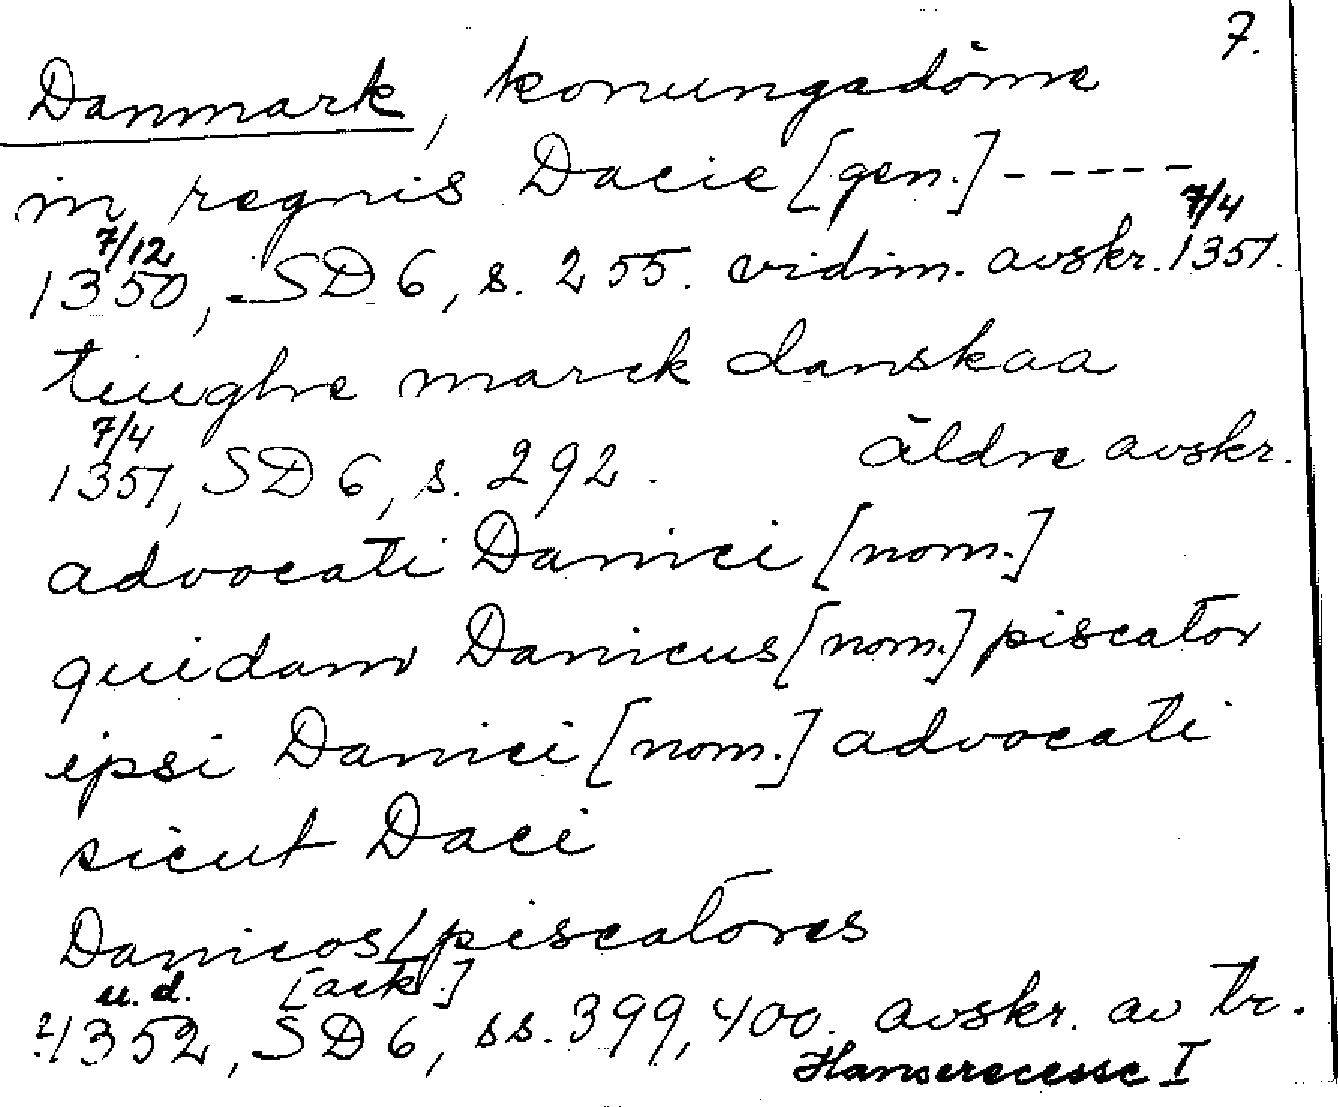 7.
Danmark, konungadöme
in regnis Dacie [gen.] -----
7/12 7/4
1350, SD 6, s. 255. vidim. avskr. 1351.
tiughve marck danskaa
7/4
1351, SD 6, s. 292. äldre avskr.
advocati Danici [nom.]
quidam Danicus [nom.] piscator
ipsi Danici [nom.] advocati
sicut Daci
Danicos / piscatores
u. d. [ack.]
?1352, SD 6, ss. 399, 400. avskr. av tr.
Hanserecesse I